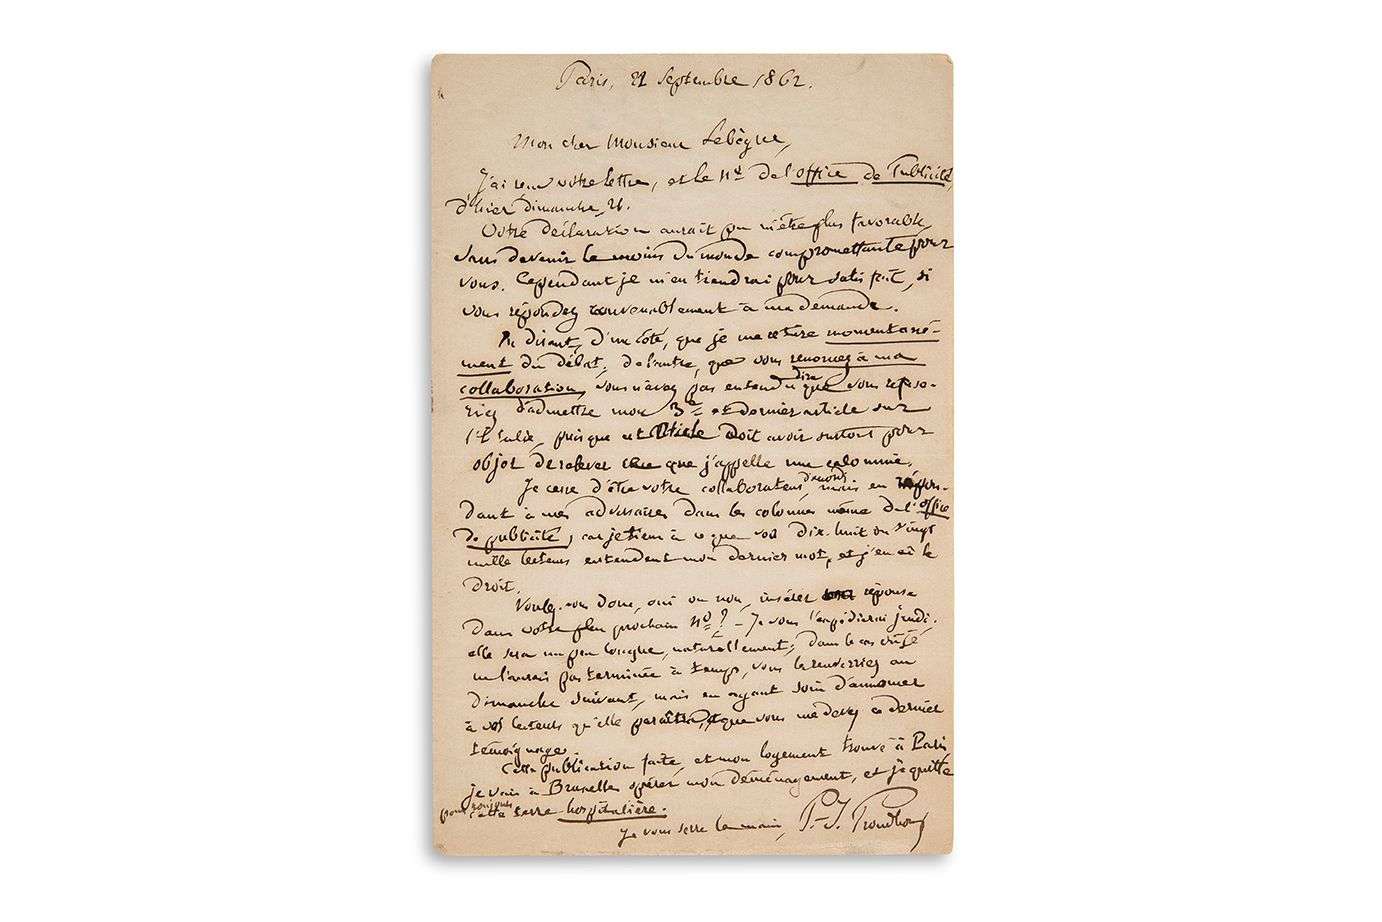 Paris, 21 Septembre 1862.
Mon cher Monsieur Lebègue,
J'ai reçu votre lettre, et le nº de l'office de Publicité,
d'hier, dimanche, 21.
Votre déclaration aurait pu m'être plus favorable,
sans devenir le moins du monde compromettante pour
vous. Cependant je m'en tiendrai pour satisfait, si
vous répondez convenablement à ma demande.
En disant, d'un côté, que je me retire momentané-
ment du débat; de l'autre, que vous renoncez à ma
collaboration, vous n'avez pas entendu dire que vous refuse-
riez d'admettre mon 3e et dernier article sur
l'Italie, puisque cet article doit avoir surtout pour
objet de relever ce que j'appelle une calomnie.
Je cesse d'être votre collaborateur, mais en répon-
dant à mes adversaires dans les colonnes même de l'office
de publicité, car je tiens à ce que vos dix-huit ou vingt
mille lecteurs entendent mon dernier mot, et j'en ai le
droit.
Voulez-vous donc, oui ou non, insérer réponse
dans votre plus prochain nº? – Je vous l'expédierai jeudi.
elle sera un peu longue, naturellement; dans le cas où je
ne l'aurais pas terminée à temps, vous la renverriez au
dimanche suivant, mais en ayant soin d'annoncer
à vos lecteurs qu'elle paraîtra, et que vous me devez ce dernier
témoignage.
Cette publication faite, et mon logement trouvé à Paris
je vais à Bruxelles opérer mon déménagement, et je quitte
pour toujours cette terre hospitalière.
Je vous serre la main, P.-J. Proudhon